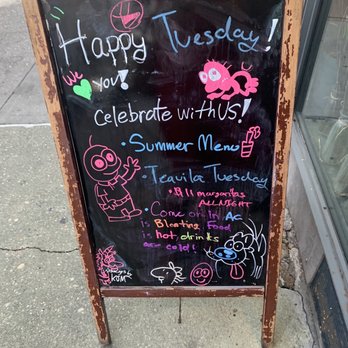 Happy Tuesday!
We
you!
Celebrate with US!
• Summer Menu
• Teavila Tuesday
• $11 margaritas
ALL NIGHT
• Come on In AC
is Blasting, Food
is Hot, drinks
are cold!